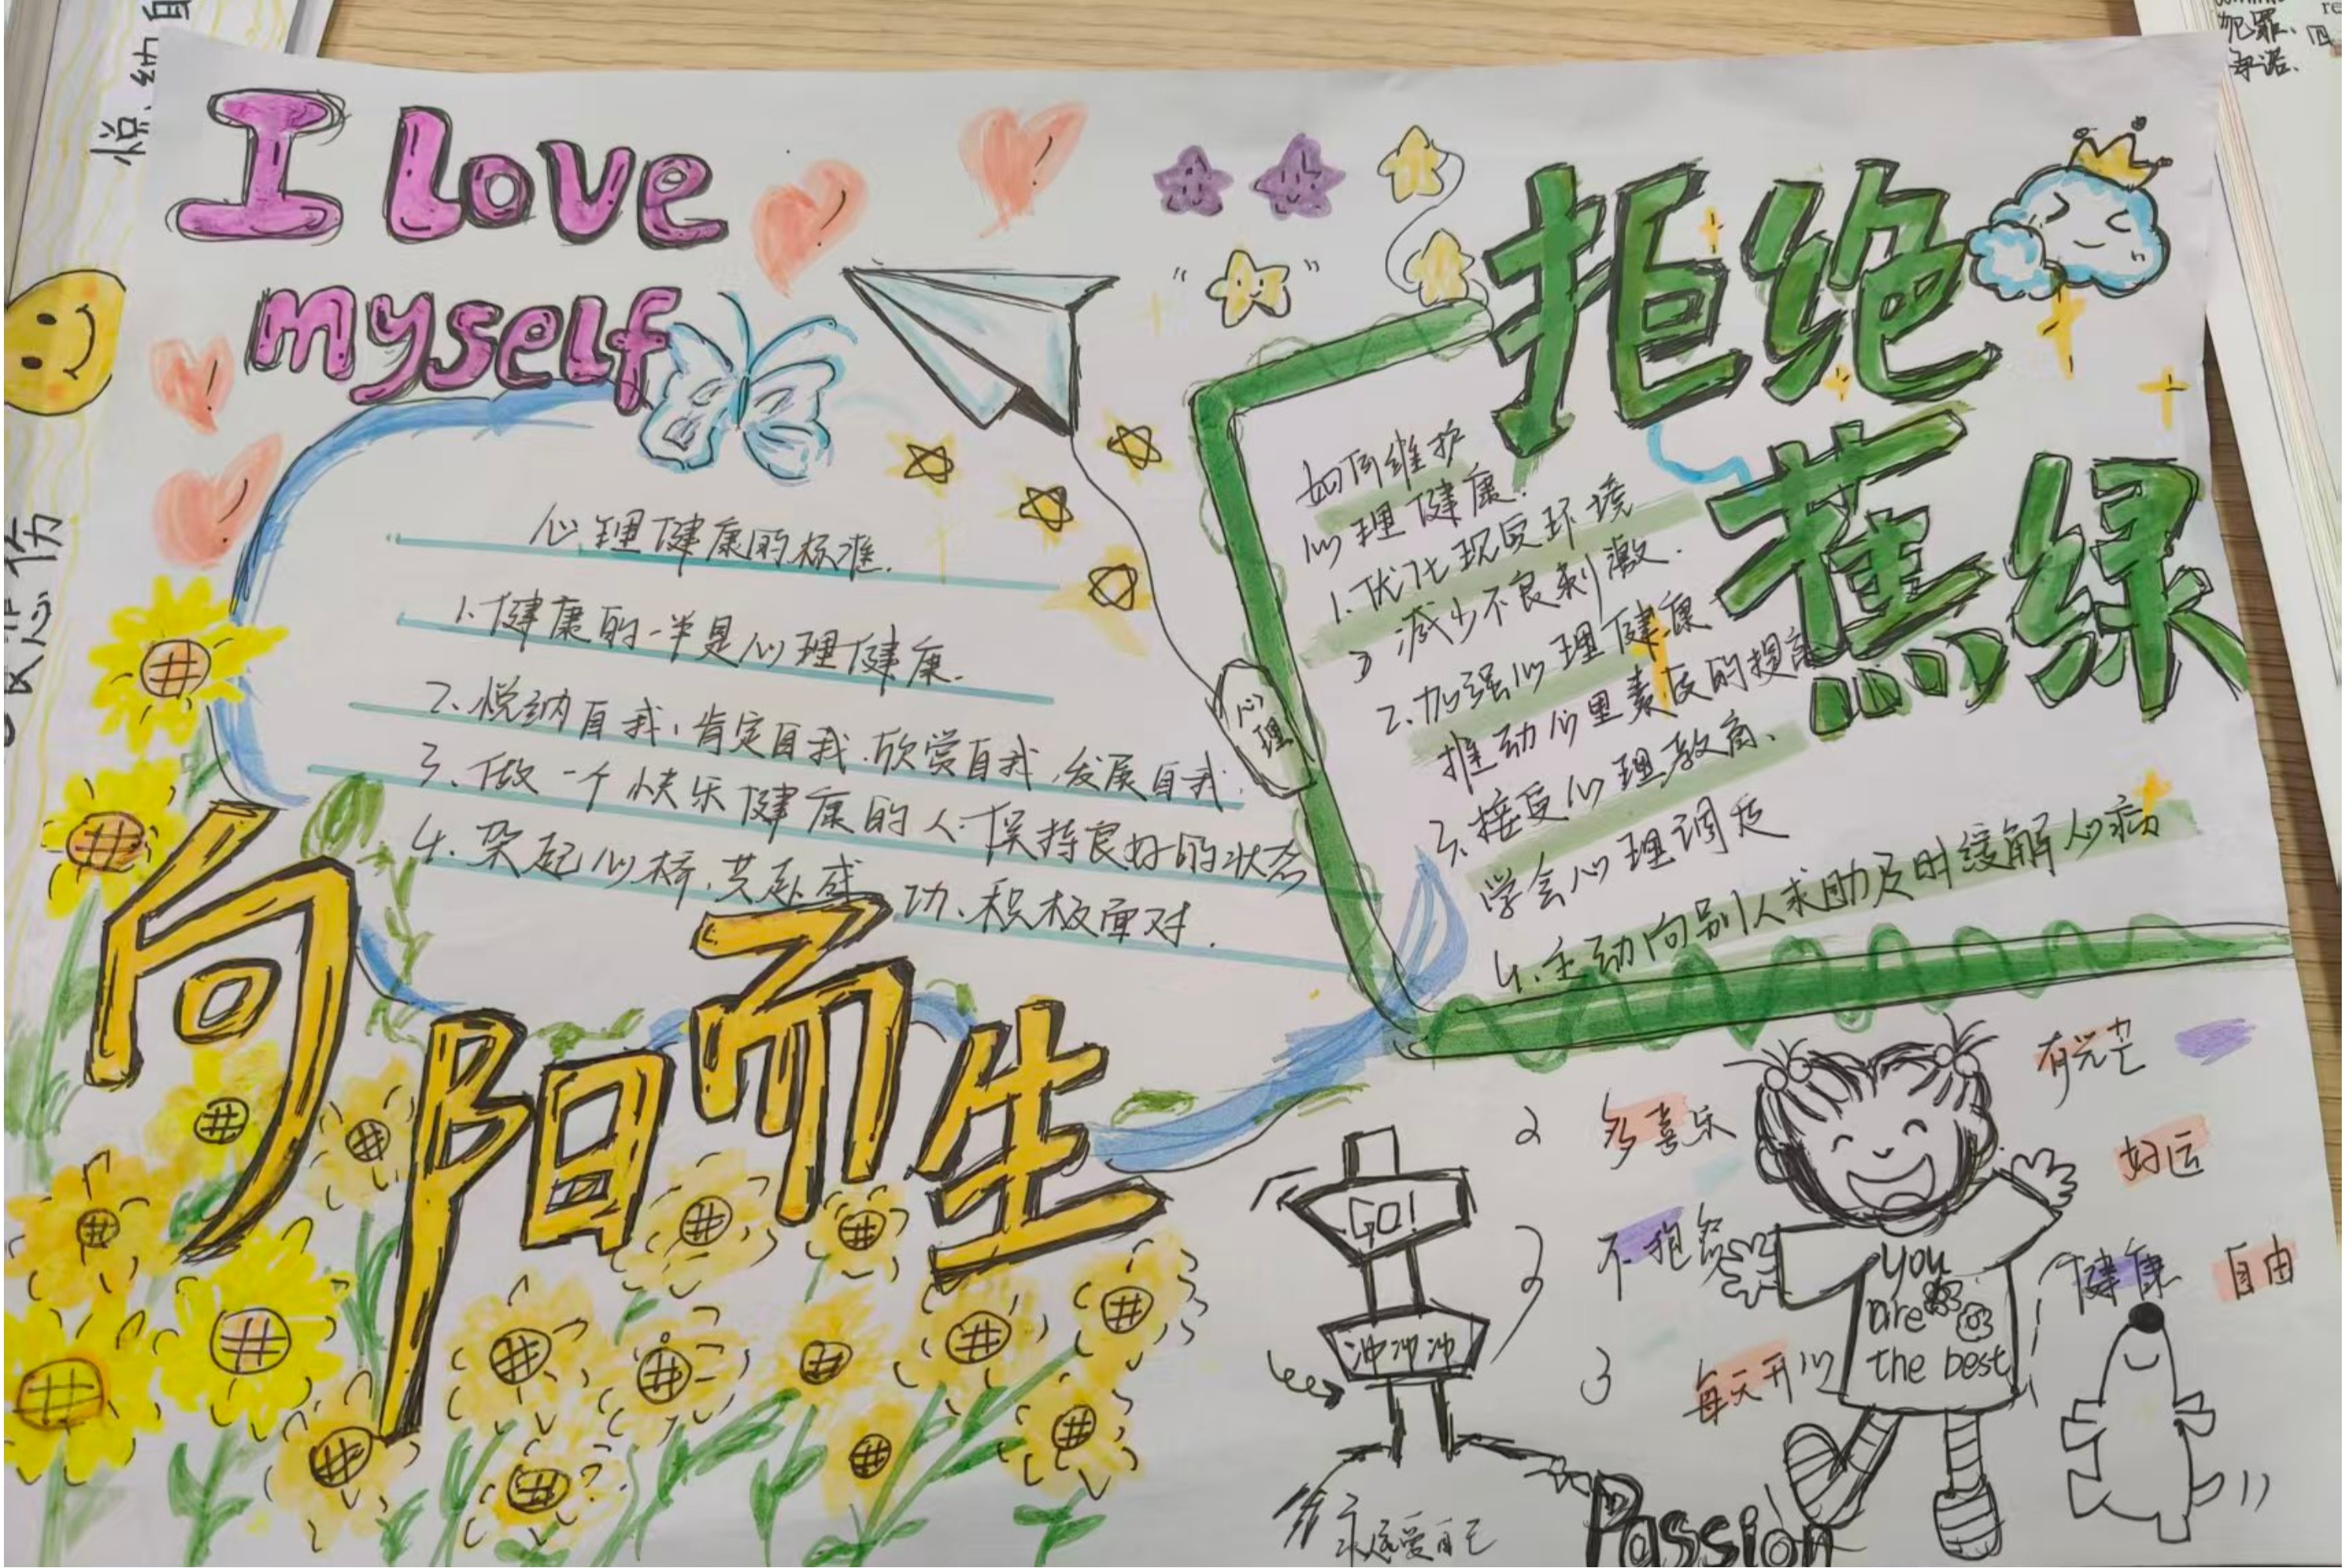 I Love
myself
心理健康的标准.
1.健康的一半是心理健康.
2.悦纳自我,肯定自我.欣赏自我,发展自我.
3.做一个快乐健康的人.保持良好的状态
4.架起心桥,共赴成功、积极面对.
向阳而生
拒绝
蕉绿
如何维护
心理健康.
1.优化现实环境
减少不良刺激.
2.加强心理健康
推动心里素质的提高
3.接受心理教育、
学会心理调适
4.主动向别人求助及时缓解心病
心理
GO!
冲冲冲
永远爱自己
Passion
多喜乐
不抱怨
3
每天开心
you
are
the best
有光芒
好运
健康
自由
犯罪、
承诺、